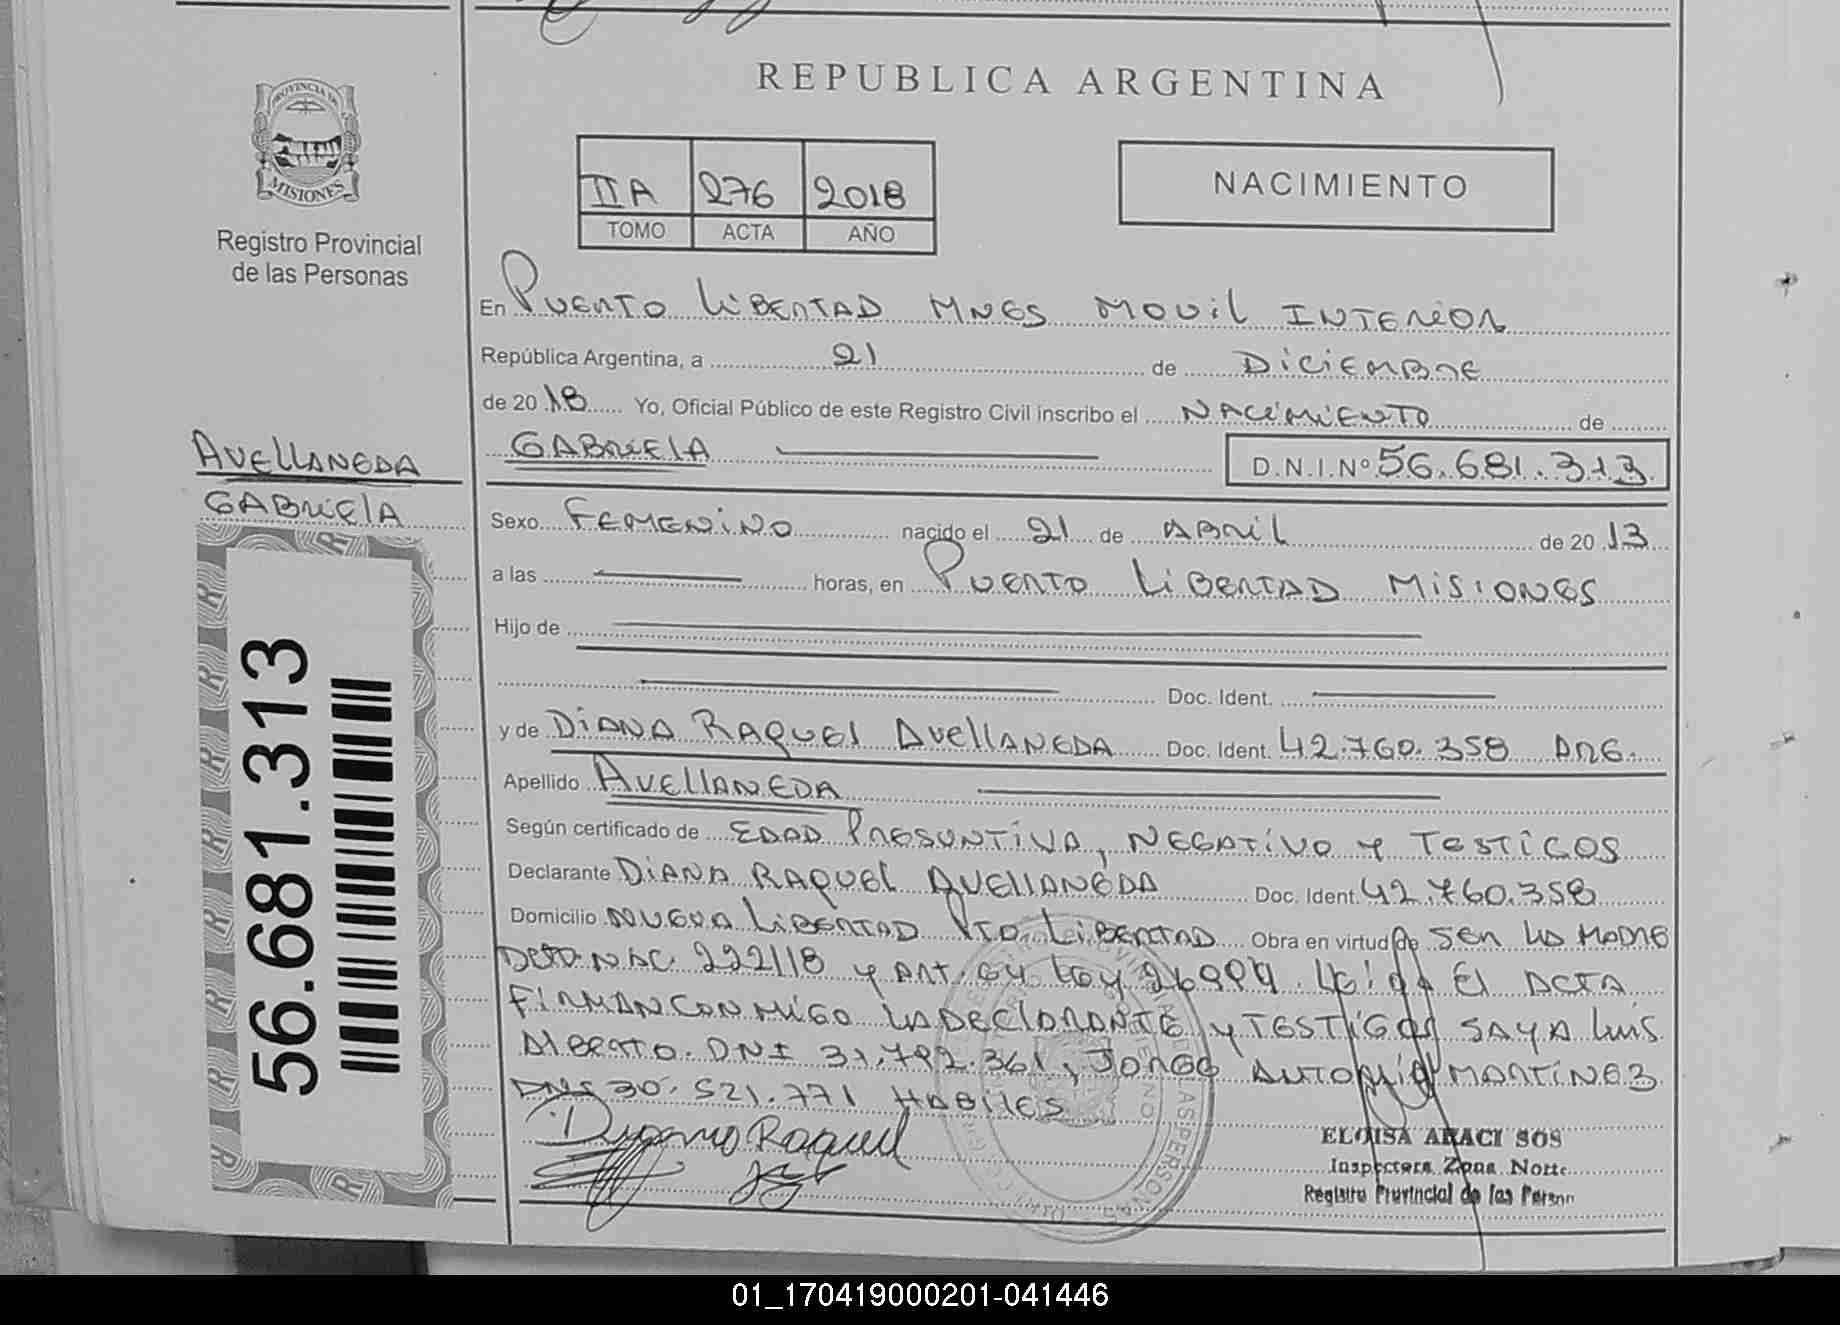 REPUBLICA ARGENTINA
PROVINCIA DE
MISIONES
Registro Provincial
de las Personas
IIA 276 2018
TOMO ACTA AÑO
NACIMIENTO
En PUERTO LIBERTAD MNES MOVIL INTERIOR
República Argentina, a 21 de DICIEMBRE
de 2018 Yo, Oficial Público de este Registro Civil inscribo el NACIMIENTO de
GABRIELA D.N.I.Nº 56.681.313
AVELLANEDA
GABRIELA
Sexo FEMENINO nacido el 21 de ABRIL de 2013
a las horas, en PUERTO LIBERTAD MISIONES
Hijo de
Doc. Ident.
y de DIANA RAQUEL AVELLANEDA Doc. Ident. 42.760.358 ARG.
Apellido AVELLANEDA
Según certificado de EDAD PRESUNTIVA, NEGATIVO Y TESTIGOS
Declarante DIANA RAQUEL AVELLANEDA Doc. Ident. 42.760.358
Domicilio NUEVA LIBERTAD PTO LIBERTAD Obra en virtud de SER LA MADRE
NAC. 222/18 Y ART. LEY EL ACTA
FIRMAN CONMIGO LA DECLARANTE Y TESTIGOS SAYA LUIS
ALBERTO. DNI 31.792.361, JORGE ANTONIO MARTINEZ
DNI 30.521.771 HABILES
Raquel
ELOISA ARACI SOS
Inspectora Zona Norte
Registro Provincial de las Person
56.681.313
01_170419000201-041446